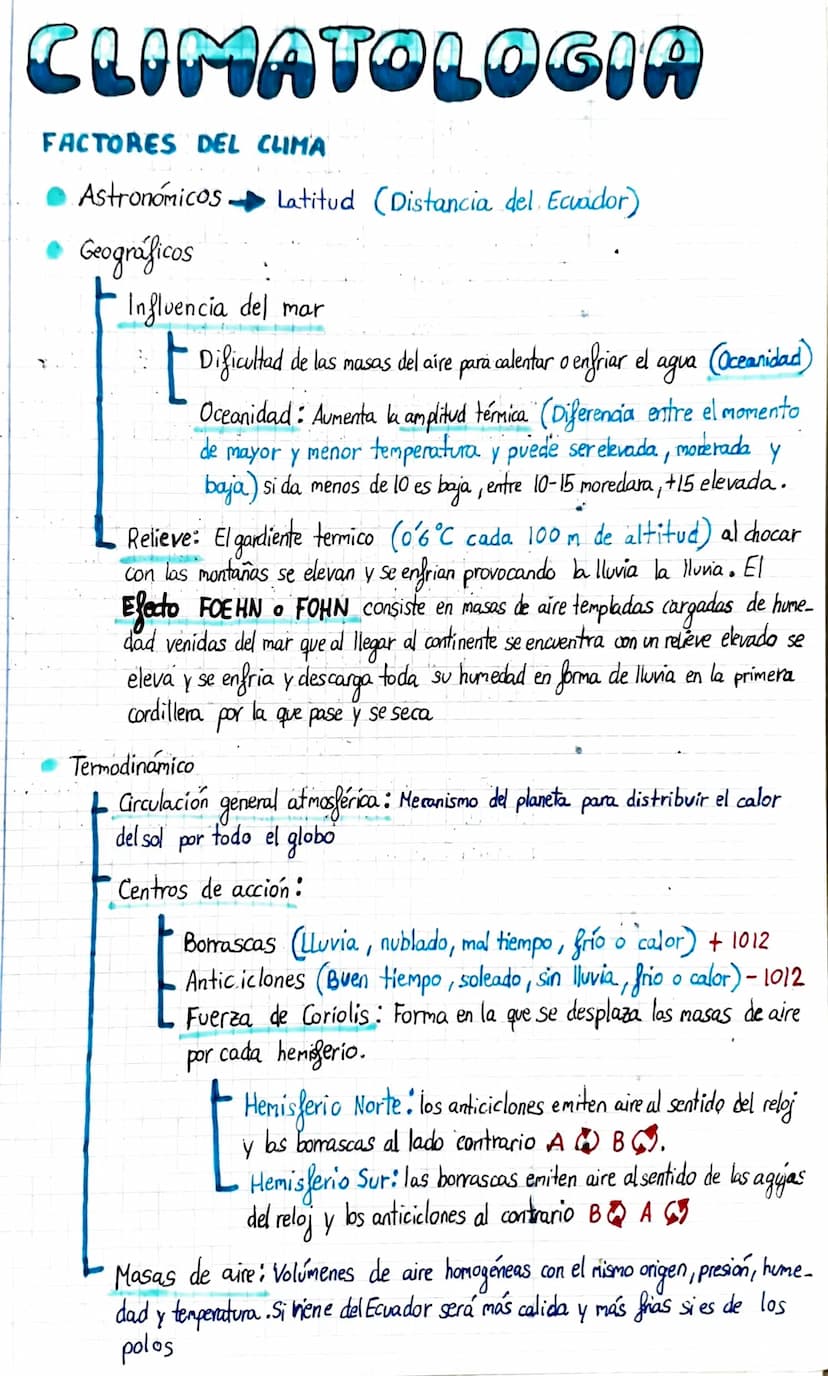 CLIMATOLOGIA
FACTORES DEL CLIMA
Astronómicos → Latitud (Distancia del Ecuador)
Geográficos
Influencia del mar
Dificultad de las masas del aire para calentar o enfriar el agua (Oceanidad)
Oceanidad: Aumenta la amplitud térmica (Diferencia entre el momento
de mayor y menor temperatura y puede ser elevada, moderada y
baja) si da menos de 10 es baja, entre 10-15 moredara, +15 elevada.
Relieve: El gardiente termico (0'6°C cada 100 m de altitud) al chocar
con las montañas se elevan y se enfrian provocando la lluvia la lluvia. El
Efecto FOEHN o FOHN consiste en masas de aire templadas cargadas de hume-
dad venidas del mar que al llegar al continente se encuentra con un relieve elevado se
eleva y se enfria y descarga toda su humedad en forma de lluvia en la primera
cordillera por la que pase y se seca
Termodinámico
Circulación general atmosférica: Mecanismo del planeta para distribuir el calor
del sol por todo el globo
Centros de acción:
Borrascas (Lluvia, nublado, mal tiempo, frío o calor) + 1012
Anticiclones (Buen tiempo, soleado, sin lluvia, frio o calor) - 1012
Fuerza de Coriolis: Forma en la que se desplaza las masas de aire
por cada hemiferio.
Hemisferio Norte: los anticiclones emiten aire al sentido del reloj
y las borrascas al lado contrario A ↻ B ↺.
Hemisferio Sur: las borrascas emiten aire al sentido de las agujas
del reloj y los anticiclones al contrario B ↻ A ↺
Masas de aire: Volúmenes de aire homogéneas con el mismo origen, presión, hume-
dad y temperatura. Si viene del Ecuador será más calida y más frias si es de los
polos